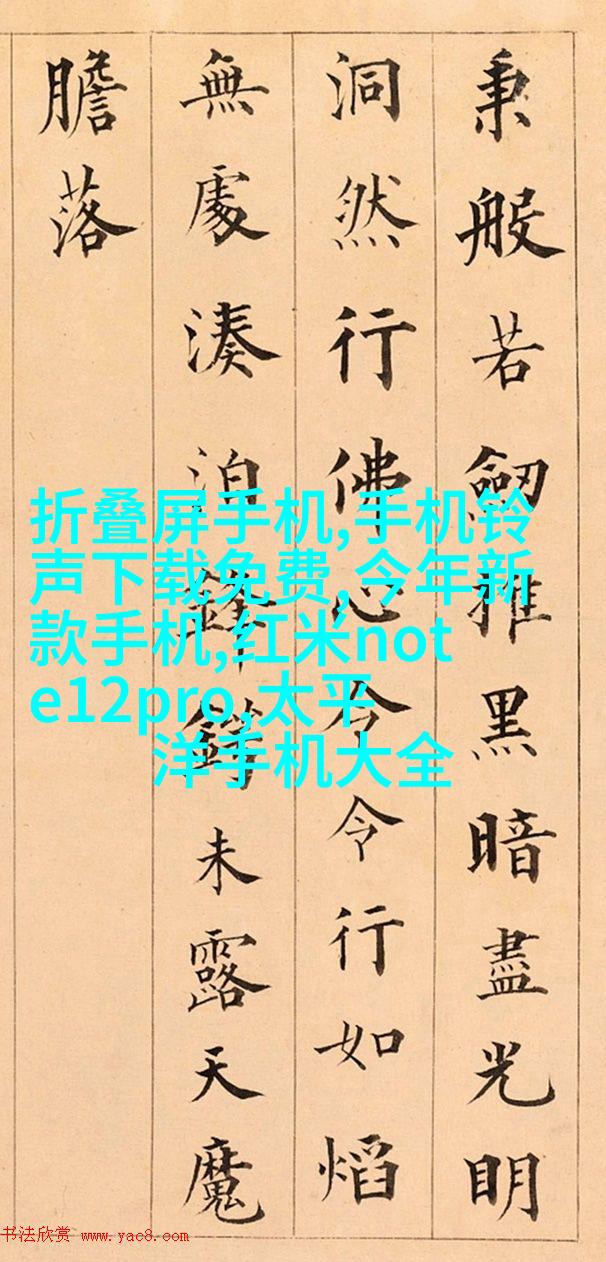 秉般若劒推黑暗盡光明
洞然行佛心令令行如焰
無處湊泊鋒鍔未露天魔
膽落
折叠屏手机,手机铃
声下载免费,今年新
款手机,红米not
e12pro,太平
洋手机大全
书法欣赏 www.yac8.com